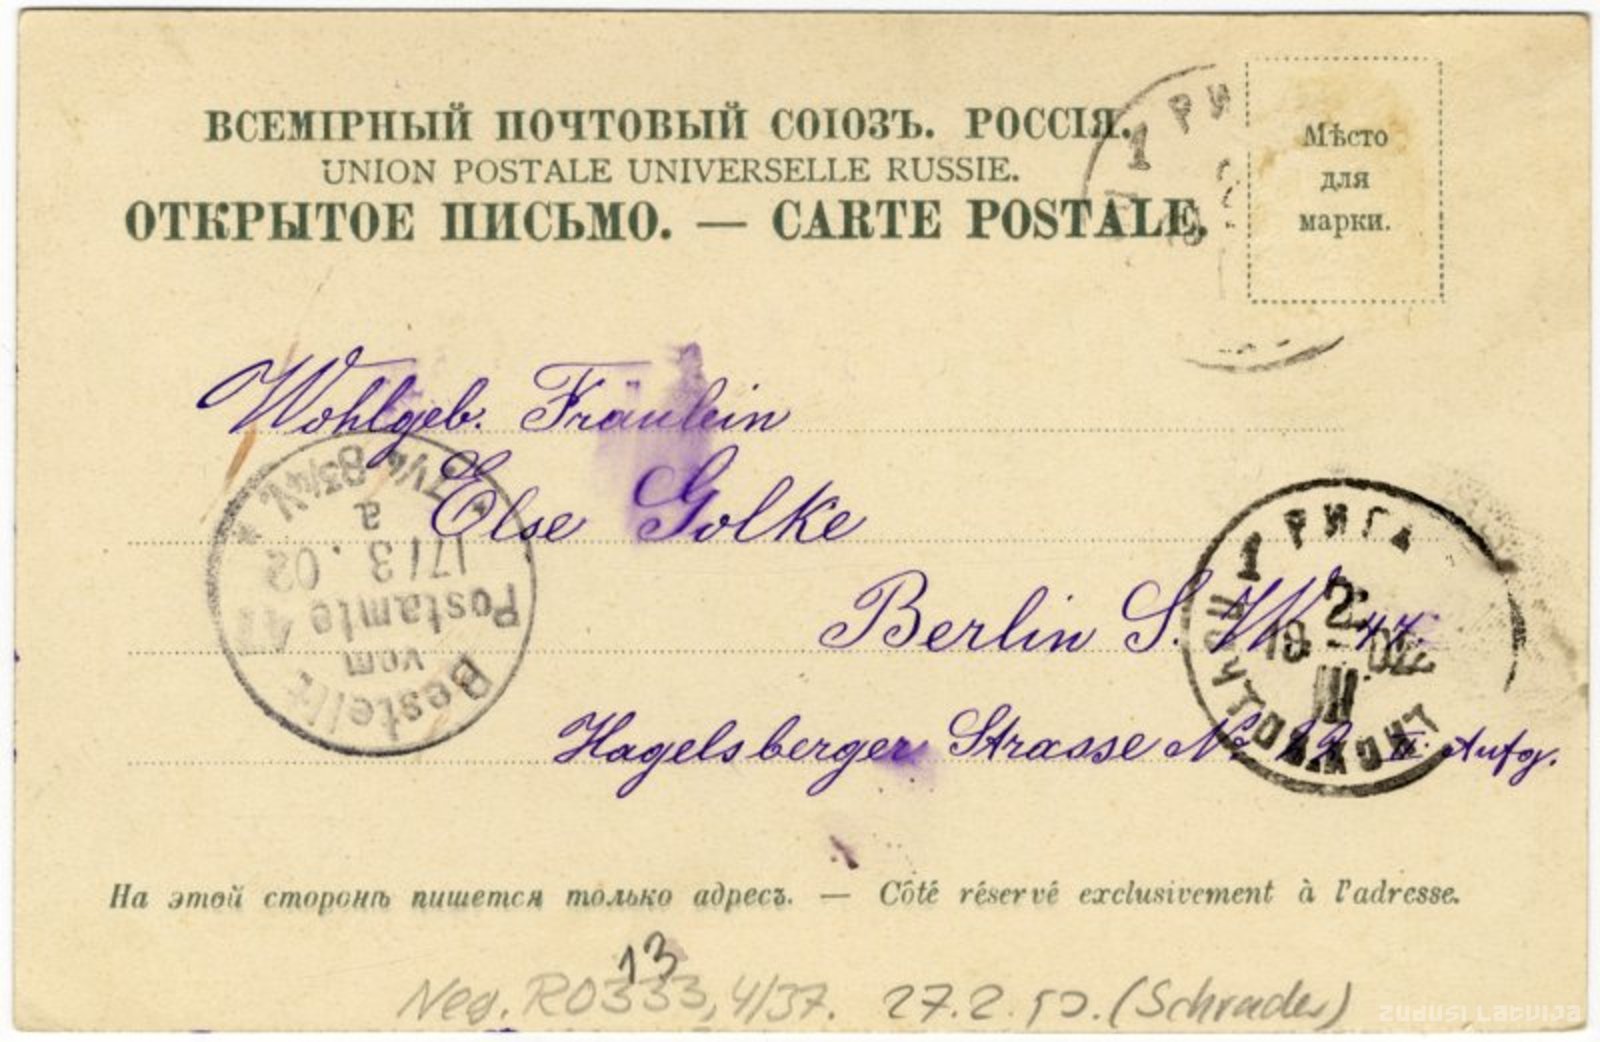 ВСЕМІРНЫЙ ПОЧТОВЫЙ СОЮЗЪ. РОССІЯ.
UNION POSTALE UNIVERSELLE RUSSIE.
ОТКРЫТОЕ ПИСЬМО. — CARTE POSTALE.
1 РИ
Мѣсто
для
марки.
Wohlgeb. Fräulein
Else Golke
Berlin S. W. 47.
Hagelsberger Strasse No 22 II. Aufg.
Bestellt
vom
Postamte 47
17/3.02
a
* 7¼-8¾V. *
1 РИГА
2
19 - 02
III
ПОЧТОВ. КОНТ
На этой сторонѣ пишется только адресъ. — Côté réservé exclusivement à l'adresse.
13
Neg. RO333, 4/37. 27.2.50. (Schrader)
zudusi Latvija